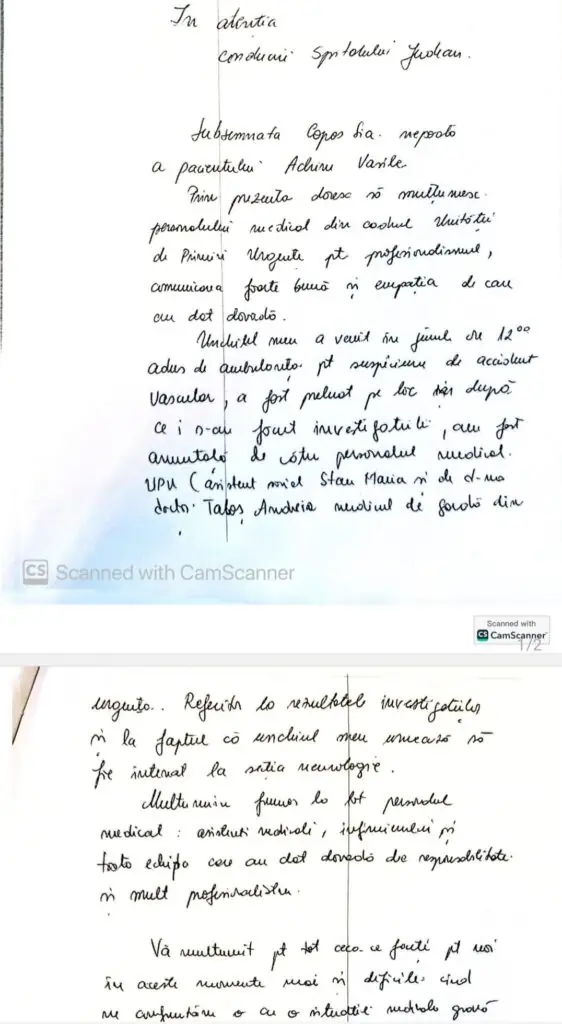 In atentia
conducerii Spitalului Judean.
Subsemnata Copos Lia. nepoată
a pacientului Achim Vasile
Prin prezenta doresc să multumesc
personalului medical din cadrul Unitătii
de Primiri Urgente pt profesionalismul,
comunicarea foarte bună si empatia de care
au dat dovadă.
Unchiul meu a venit în jurul orei 12⁰⁰
adus de ambulanta pt suspiciune de accident
vascular, a fost preluat pe loc iar după
ce i s-au făcut investigatiile, am fost
anuntată de către personalul medical
UPU (asistent social Stan Maria si de d-na
doctor Talos Andreia medicul de gardă din
CS Scanned with CamScanner
Scanned with
CS CamScanner
1/2
urgenta.. Referitor la rezultatele investigatiilor
si la faptul că unchiul meu urmează să
fie internat la sectia neurologie.
Multumim frumos la tot personalul
medical : asistenti medicali, infirmierului si
toata echipa care au dat dovadă de responsabilitate
si mult profesionalism.
Vă multumit pt tot ceea ce faceti pt noi
în aceste momente mai si dificile când
ne confruntăm cu o situatie medicala gravă